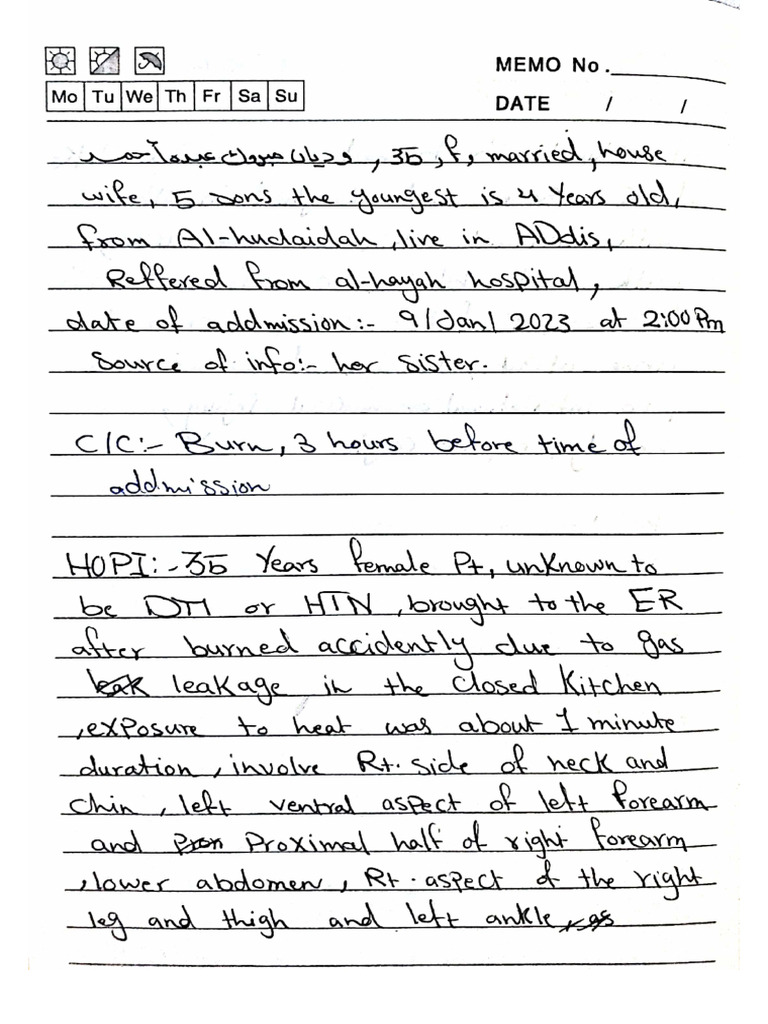 MEMO No.
Mo Tu We Th Fr Sa Su
DATE / /
, 35, f, married, house
wife, 5 sons the youngest is 4 Years old,
from Al-hudaidah, live in ADdis,
Reffered from al-hayah hospital,
date of addmission:- 9/Jan/2023 at 2:00 Pm
Source of info:- her sister.
C/C:- Burn, 3 hours before time of
addmission
HOPI:- 35 Years female Pt, unknown to
be DM or HTN, brought to the ER
after burned accidently due to gas
leakage in the closed kitchen
, exposure to heat was about 1 minute
duration, involve Rt. side of neck and
chin, left ventral aspect of left forearm
and Proximal half of right forearm
, lower abdomen, Rt. aspect of the right
leg and thigh and left ankle,